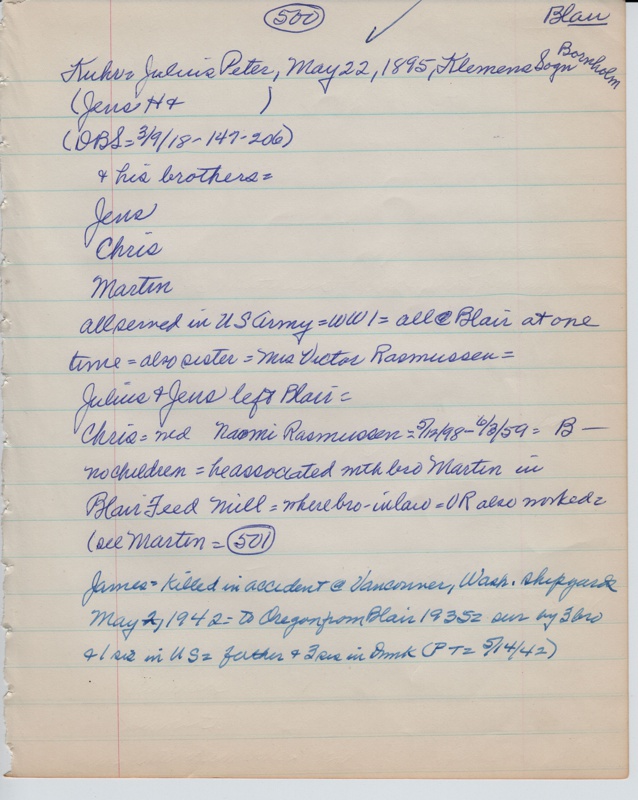 500
Blair
Kuhr = Julius Peter, May 22, 1895, Klemens Sogn Bornholm
(Jens H & )
(DBS = 3/9/18 - 147 - 206)
& his brothers =
Jens
Chris
Martin
all served in US Army = WW 1 = all @ Blair at one
time = also sister = Mrs Victor Rasmussen =
Julius & Jens left Blair =
Chris = md Naomi Rasmussen = 5/12/98 - 6/3/59 = B —
no children = he associated with bro Martin in
Blair Feed Mill = where bro-in law = VR also worked =
(see Martin = 501
James = Killed in accident @ Vancouver, Wash. shipyards
May 2, 1942 = to Oregon from Blair 1935 = sur by 3 bro
& 1 sis in US = father & 3 sis in Dmk (PT = 5/14/42)